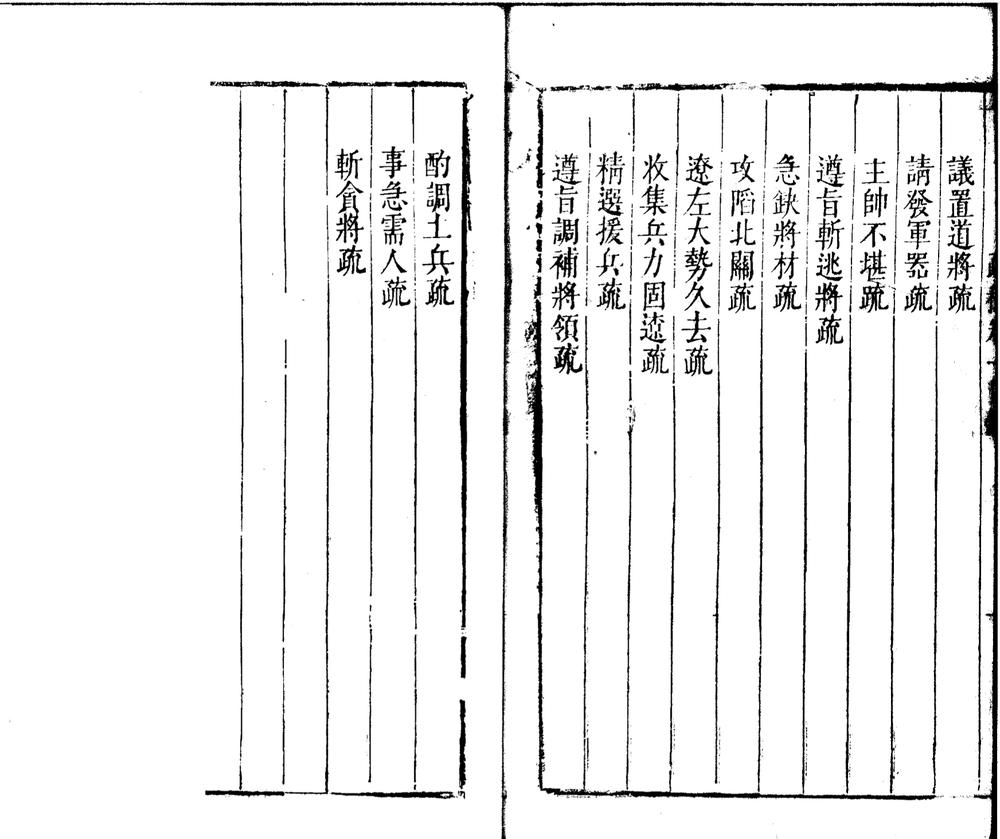 議置道將疏
請發軍器疏
主帥不堪疏
遵旨斬逃將疏
急缺將材疏
攻䧟北關疏
遼左大勢久去疏
收集兵力固遼疏
精選援兵疏
遵旨調補將領疏
酌調土兵疏
事急需人疏
斬貪將疏